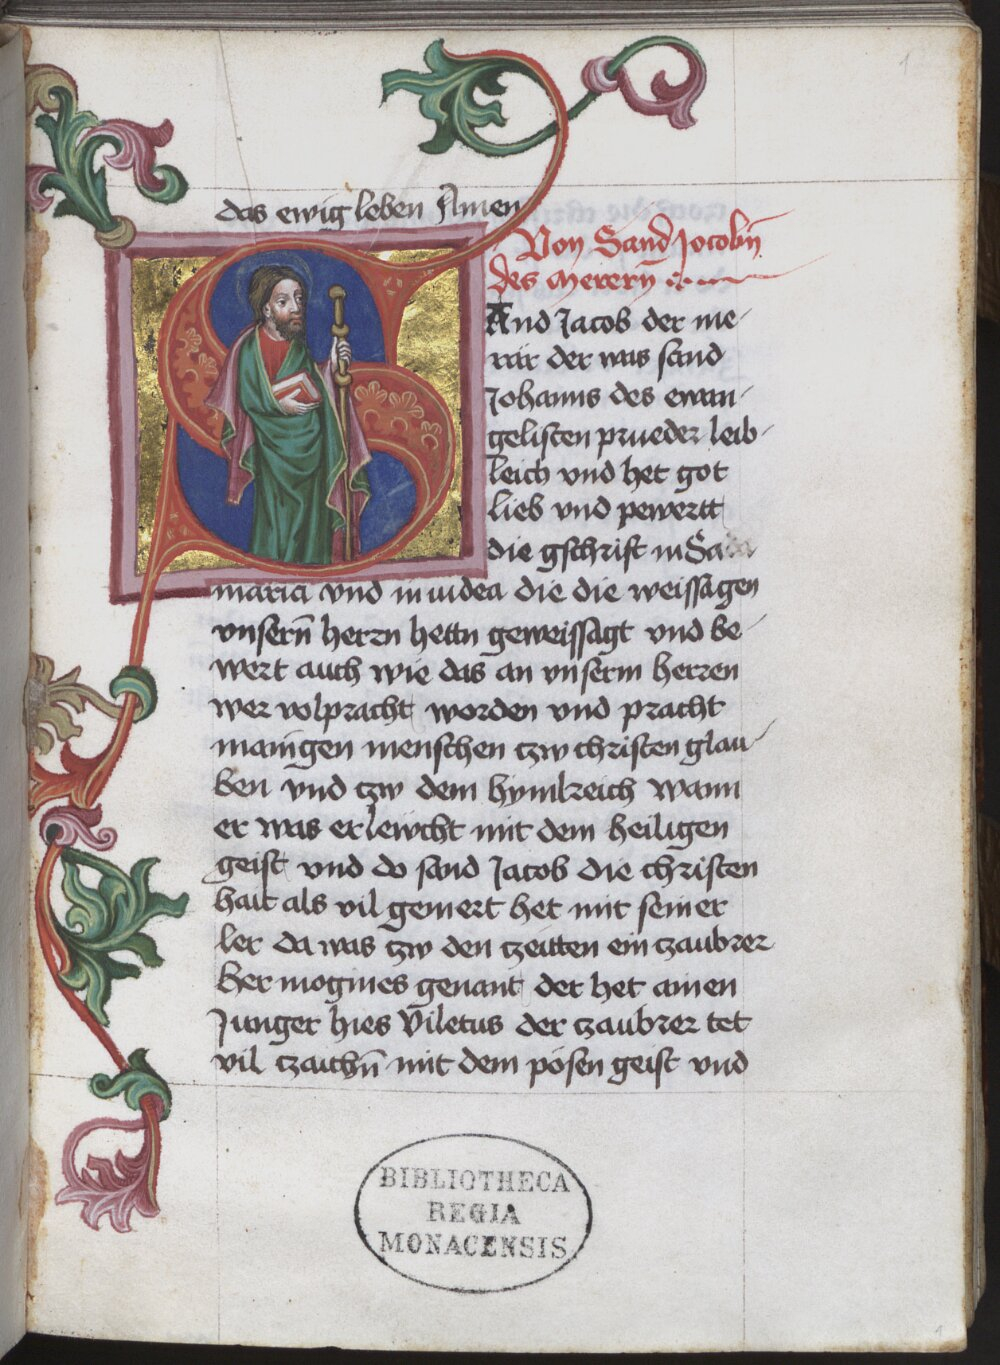 1
das ewig leben Amen
Von Sand Jocobn̄
des Merern̄
And Jacob der me-
rar der was sand
Johanns des ewan-
gelisten prueder leib-
leich vnd het got
lieb vnd pewertt
die gschrift in Sa
maria vnd in iudea die die weissagen
vnsern̄ herrn hettn geweissagt vnd be-
wert auch wie das an vnserm herren
wer volpracht worden vnd pracht
manigen menschen czw christen glau-
ben vnd czw dem hymlreich wann
er was erlewcht mit dem heiligen
geist vnd do sand Jacob die christen
hait als vil gemert het mit seiner
ler da was czw den czeitten ein czaubrer
Hermogines genant der het ainen
Junger hies Viletus der czaubrer tet
vil czaichn̄ mit dem pösen geist vnd
BIBLIOTHECA
REGIA
MONACENSIS